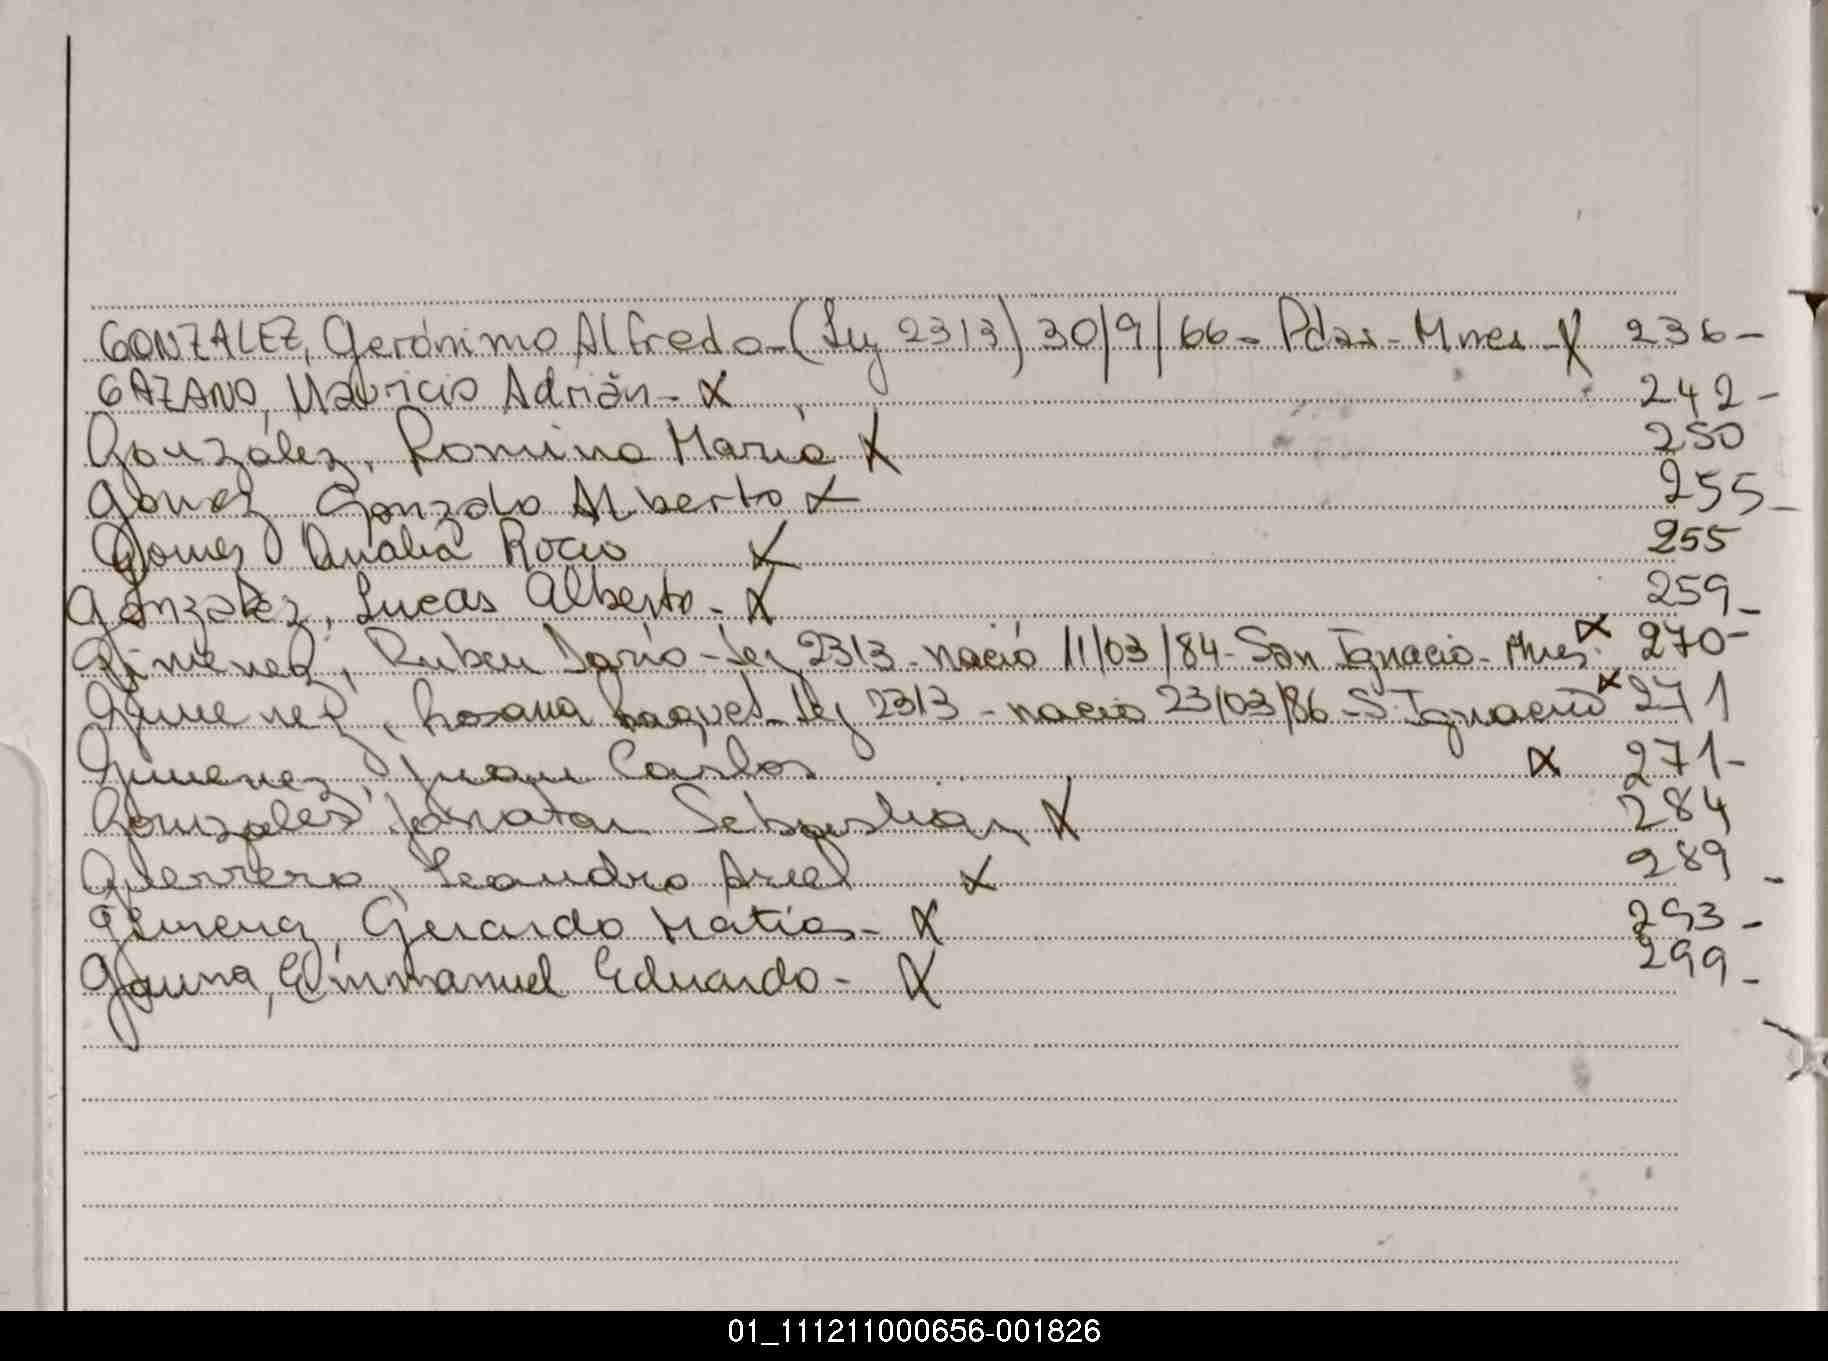 GONZALEZ, Gerónimo Alfredo-(Ley 2313) 30/9/66- Pdas-Mnes-X 236-
GAZANO, Mauricio Adrián- X 242-
González, Romina María X 250
Gomez Gonzalo Alberto X 255-
Gomez Analia Rocio X 255
Gonzalez, Lucas Alberto- X 259-
Gimenez, Ruben Dario-Ley 2313-nació 11/03/84-San Ignacio-Mnes. X 270-
Gimenez, Rosana Raquel-Ley 2313-nació 23/03/86-S. Ignacio X 271
Gimenez, Juan Carlos X 271-
Gonzales Jonatan Sebastian X 284
Guerrero, Leandro Ariel X 289-
Gimenez, Gerardo Matias- X 293-
Gauna, Emmanuel Eduardo- X 299-
01_111211000656-001826